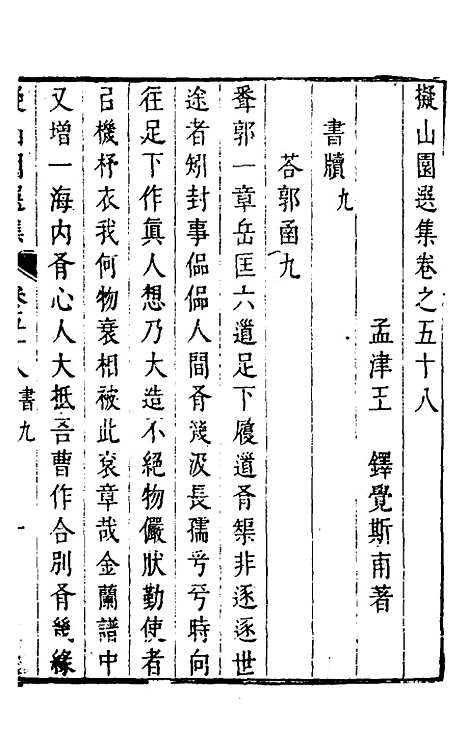 擬山園選集卷之五十八
孟津王　鐸覺斯甫著
書牘九
荅郭函九
郭一章岳匡六遒足下履道有榘非逐逐世
途者矧封事偪偪人間有幾汲長孺兮兮時向
往足下作眞人想乃大造不絕物儼狀勤使者
召機杼衣我何物衰相被此袞章哉金蘭譜中
又增一海内有心人大抵吾曹作合別有幾緣
擬山園選集
卷五十八 書九 一